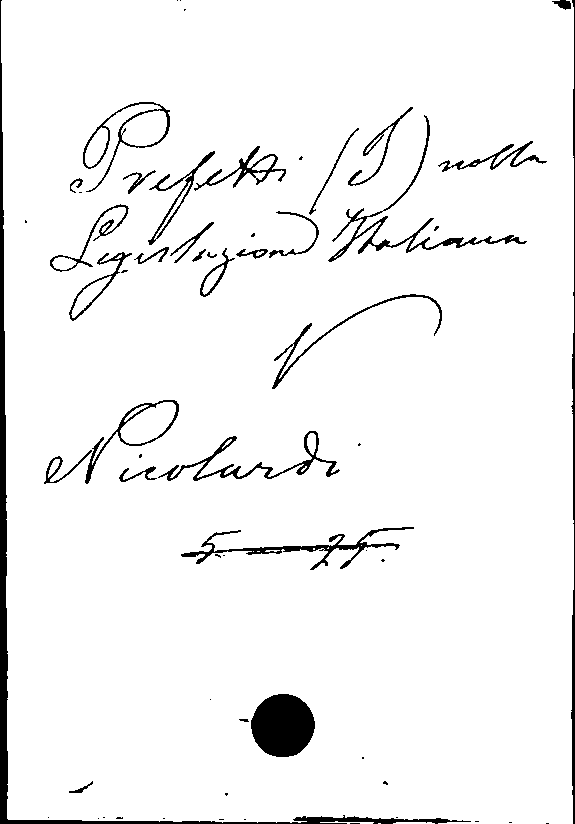 Prefetti (I) nella
Legislazione Italiana
V
Nicolardi
5 25.